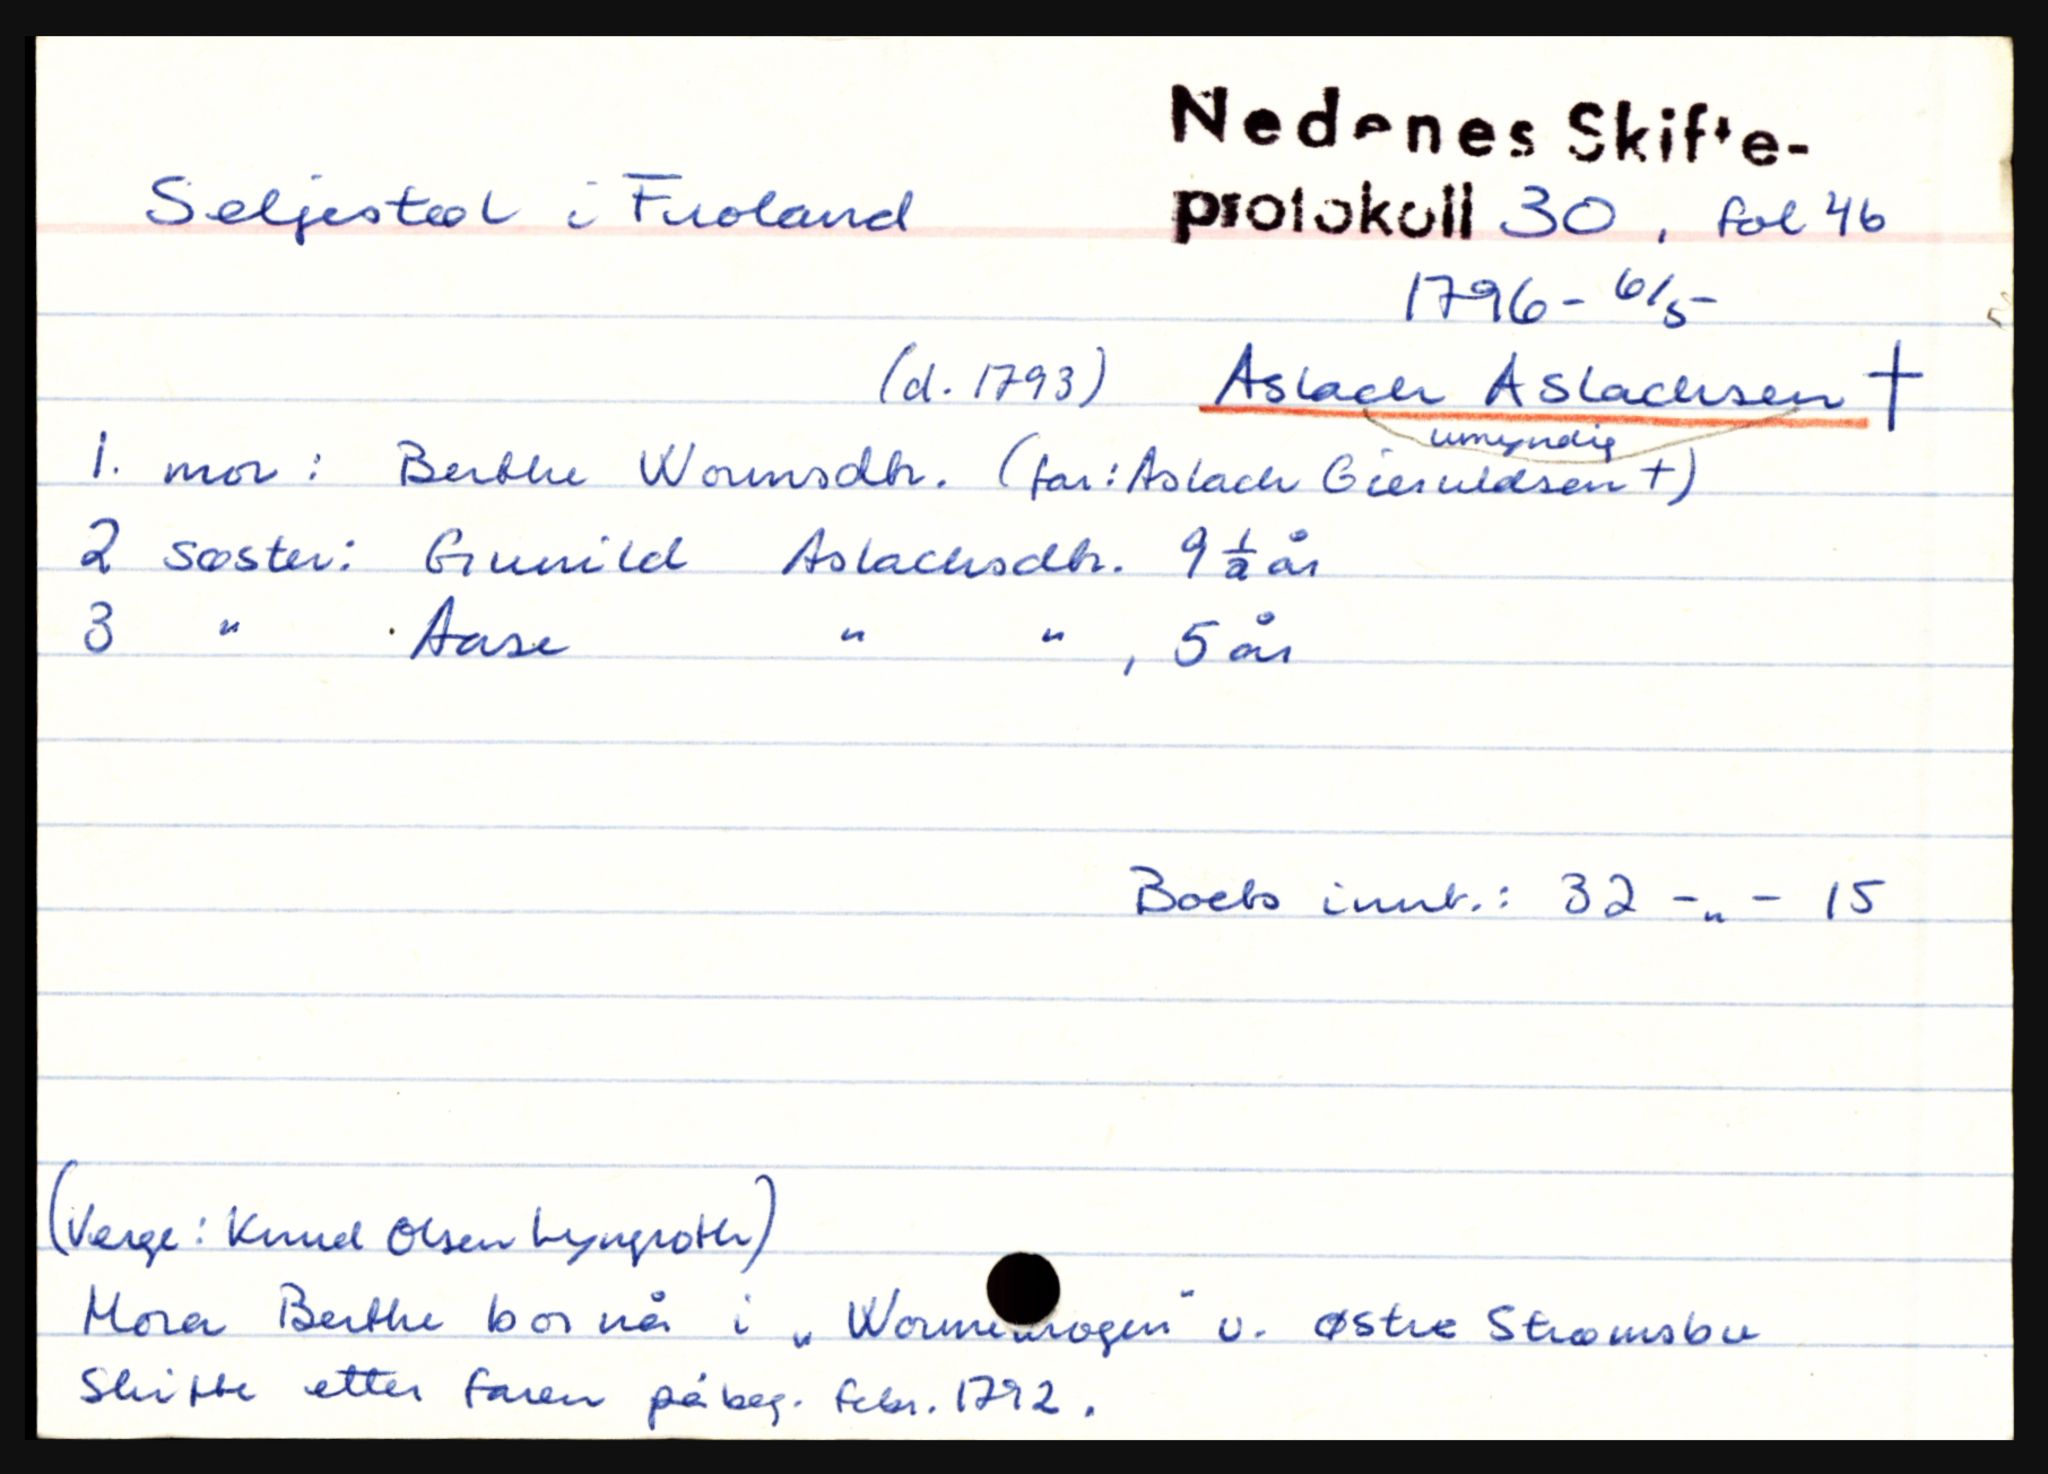 Nedenes Skifte-
Seljestad i Froland protokoll 30, fol 46
1796 - 6/5 -
(d. 1793) Aslach Aslachsen †
umyndig
1. mor: Berthe Wormsdtr. (far: Aslach Gieruldsen +)
2 søster: Gunild Aslachsdtr. 9 1/2 år
3 " Aase " " , 5 år
Boets innt.: 32 - " - 15
(Verge: Knud Olsen Lyngroth)
Mora Berthe bor nå i „Wormekrogen" v. østre Strømsbu
Skifte etter faren påbeg. febr. 1792.